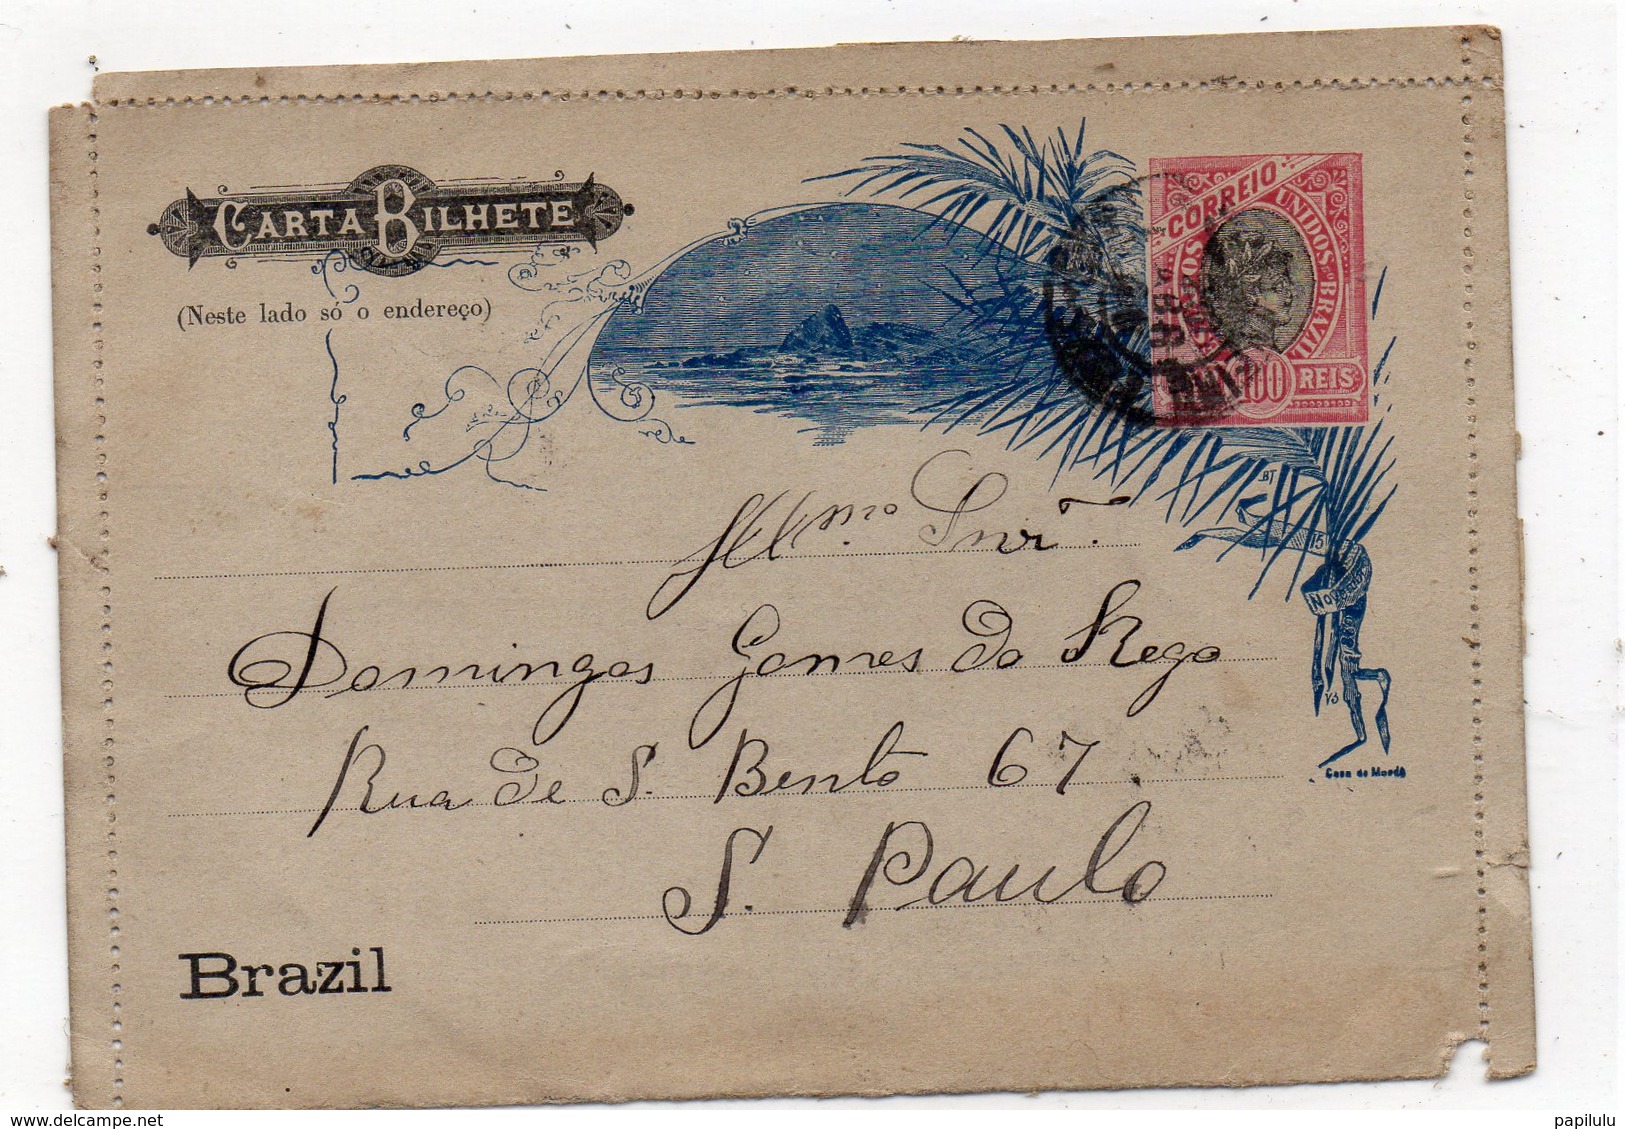 CARTA BILHETE
(Neste lado só o endereço)
CORREIO
ESTADOS UNIDOS DO BRAZIL
100 REIS
BT
15
Novembro
Vs
Casa da Moeda
Illmo. Snr.
Domingos Gomes do Rego
Rua de S. Bento 67
S. Paulo
Brazil
papilulu